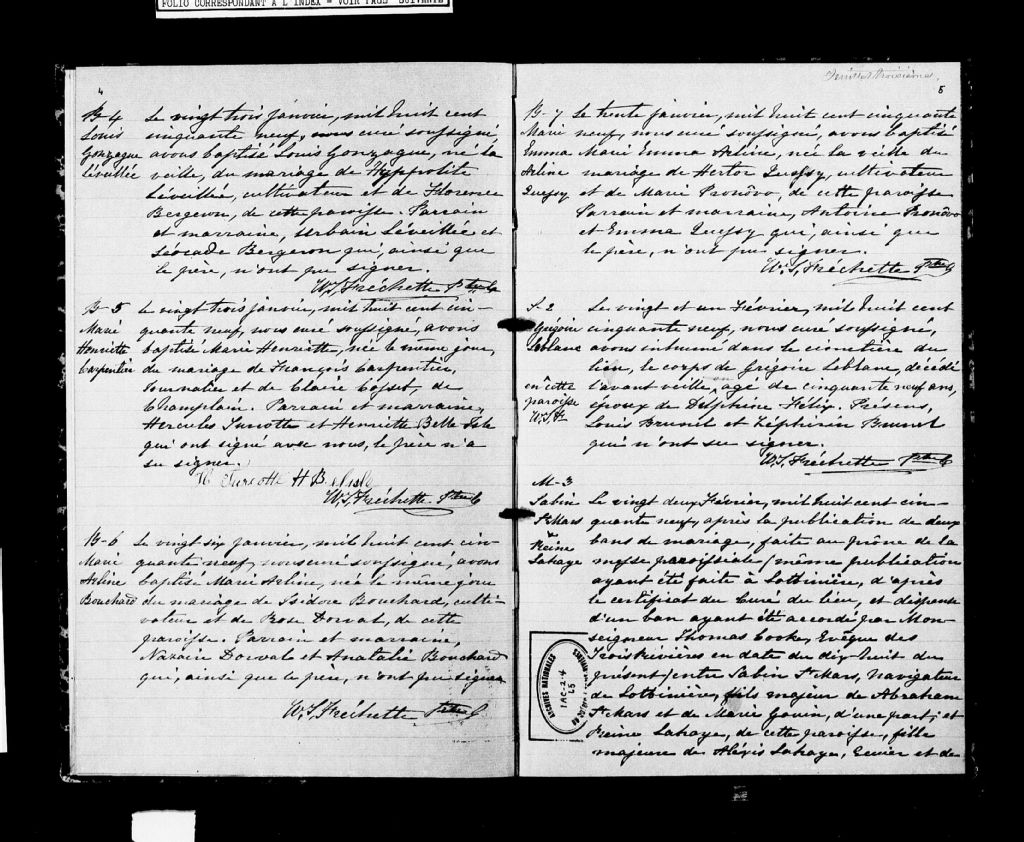 FOLIO CORRESPONDANT A L'INDEX - VOIR PAGE SUIVANTE
4
B-4 Le vingt trois janvier, mil huit cent
Louis cinquante neuf, nous curé soussigné,
Gonzague avons baptisé Louis Gonzague, né la
Léveillée veille, du mariage de Hyppolite
Léveillée, cultivateur et de Florence
Bergeron, de cette paroisse. Parrain
et marraine, Urbain Léveillée et
Léocade Bergeron qui, ainsi que
le père, n'ont pu signer.
W.S. Fréchette Ptre C
B-5 Le vingt trois janvier, mil huit cent cin-
Marie quante neuf, nous curé soussigné, avons
Henriette baptisé Marie Henriette, née le même jour,
Carpentier du mariage de François Carpentier,
Journalier et de Claire Cosset, de
Champlain. Parrain et marraine,
Hercules Turcotte et Henriette Belle Isle
qui ont signé avec nous, le père n'a
su signer.
H Turcotte H Belisle
W.S. Fréchette Ptre C
B-6 Le vingt six janvier, mil huit cent cin-
Marie quante neuf, nous curé soussigné, avons
Arline baptisé Marie Arline, née le même jour
Bouchard du mariage de Isidore Bouchard, culti-
vateur et de Rose Dorval, de cette
paroisse. Parrain et marraine,
Nazaire Dorval et Anatalie Bouchard
qui, ainsi que le père, n'ont pu signer
W.S. Fréchette Ptre C
Feuillet troisième
5
B-7 Le trente janvier, mil huit cent cinquante
Marie neuf, nous curé soussigné, avons baptisé
Emma Marie Emma Arline, née la veille du
Arline mariage de Hector Quessy, cultivateur
Quessy et de Marie Pronôvo, de cette paroisse.
Parrain et marraine, Antoine Pronôvo
et Emma Quessy qui, ainsi que
le père, n'ont pu signer.
W.S. Fréchette Ptre C
S-2 Le vingt et un Février, mil huit cent
Grégoire cinquante neuf, nous curé soussigné,
Leblanc avons inhumé dans le cimetière du
lieu, le corps de Grégoire Leblanc, décédé
en cette l'avant veille, agé de cinquante neuf ans,
paroisse époux de Delphine Félix. Présens,
W.S.F. Louis Brunel et Zéphirin Brunel
qui n'ont su signer.
W.S. Fréchette Ptre C
M-3
Sabin Le vingt deux Février, mil huit cent cin-
St Mars quante neuf, après la publication de deux
& bans de mariage, faite au prône de la
Reine messe paroissiale (même publication
Lahaye ayant été faite à Lotbinière, d'après
le certificat du Curé du lieu, et dispense
d'un ban ayant été accordé par Mon-
seigneur Thomas Cooke, Evêque des
Trois Rivières en date du dix huit du
présent) entre Sabin St Mars, navigateur
de Lotbinière, fils majeur de Abraham
St Mars et de Marie Gouin, d'une part; et
Reine Lahaye, de cette paroisse, fille
majeure de Alexis Lahaye, Huissier et de
ARCHIVES NATIONALES